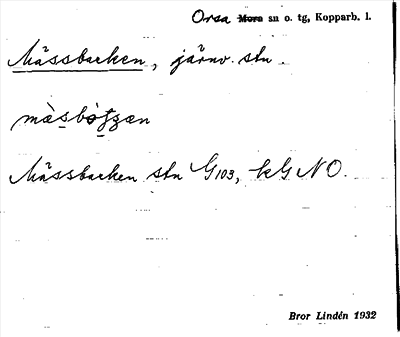 Orsa Mora sn o. tg, Kopparb. l.
Mässbacken, järnv. stn.
Mässbacken stn G103, kG NO.
Bror Lindén 1932